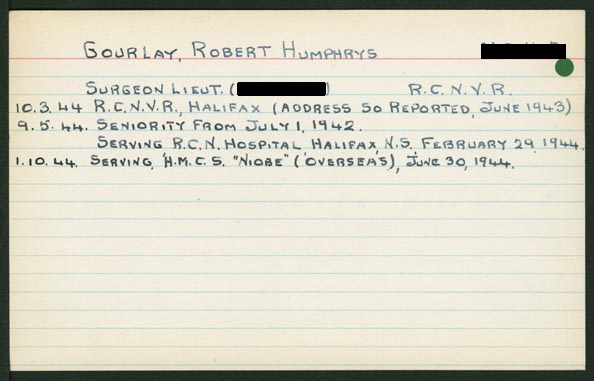 GOURLAY, ROBERT HUMPHRYS
SURGEON LIEUT. ( ) R.C.N.V.R.
10.3.44 R.C.N.V.R., HALIFAX (ADDRESS SO REPORTED, JUNE 1943)
9.5.44. SENIORITY FROM JULY 1, 1942.
SERVING R.C.N. HOSPITAL, HALIFAX, N.S. FEBRUARY 29, 1944.
1.10.44. SERVING, H.M.C.S. "NIOBE" (OVERSEAS), JUNE 30, 1944.